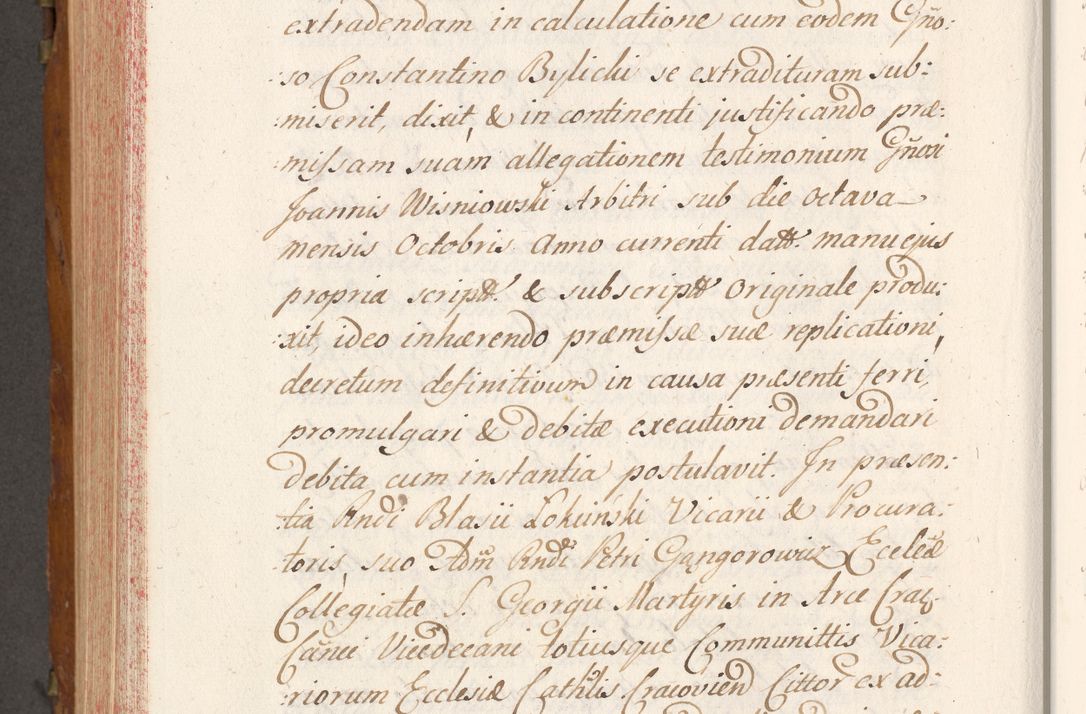 extradendam in calculatione cum eodem Gño:
:so Constantino Bylicki se extradituram sub:
:miserit, dixit, & in continenti justificando præ:
:missam suam allegationem testimonium Gñosi
Joannis Wisniowski Arbitri sub die octava
mensis Octobris Anno currenti datt. manu ejus
propria scriptt. & subscriptt originale produ:
:xit, ideo inhærendo præmissæ suæ replicationi,
decretum definitivum in causa præsenti ferri,
promulgari & debitæ executioni demandari
debita cum instantia postulavit. In præsen:
:tia Rndi Blasii Łokuinski Vicarii & Procura:
:toris, suo Adm Rndi Petri Gangorowicz Eccleæ
Collegiatæ S. Georgii Martyris in Arce Crac.
Canci Vicedecani totiusque Communittis Vica:
:riorum Ecclesiæ Cathlis Cracovien Cittor ex ad: